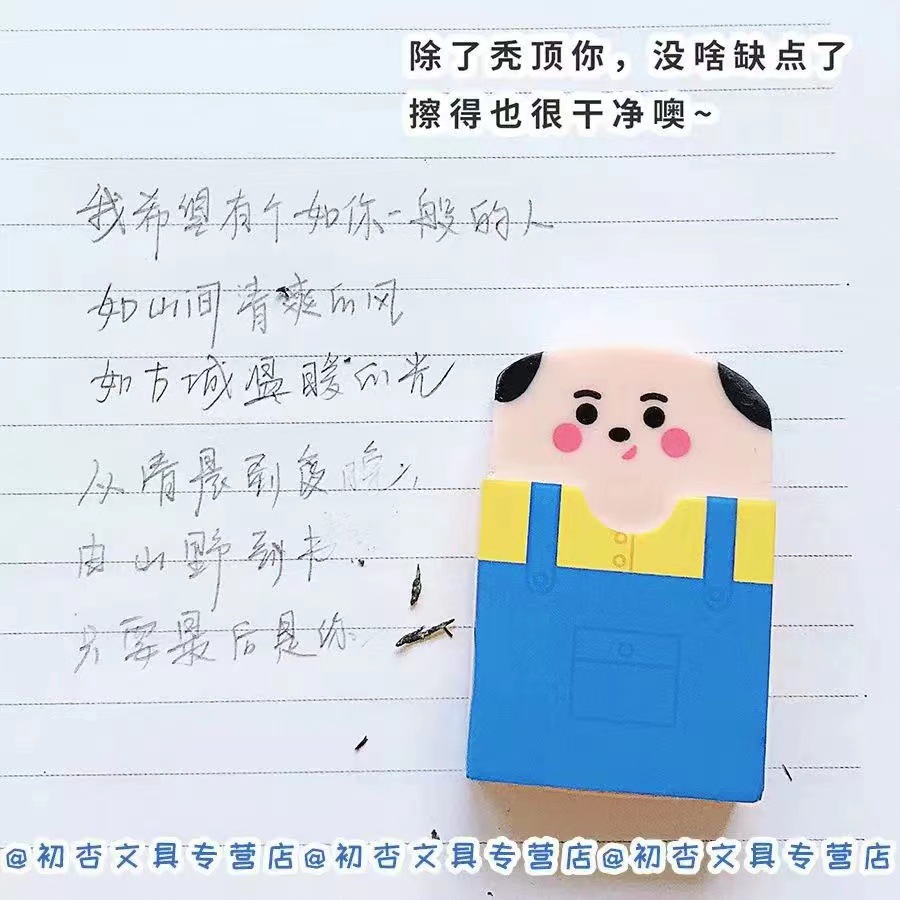 除了秃顶你，没啥缺点了
擦得也很干净噢~
我希望有个如你一般的人
如山间清爽的风
如古城温暖的光
从清晨到夜晚
由山野到书
只要最后是你
@初杏文具专营店@初杏文具专营店@初杏文具专营店